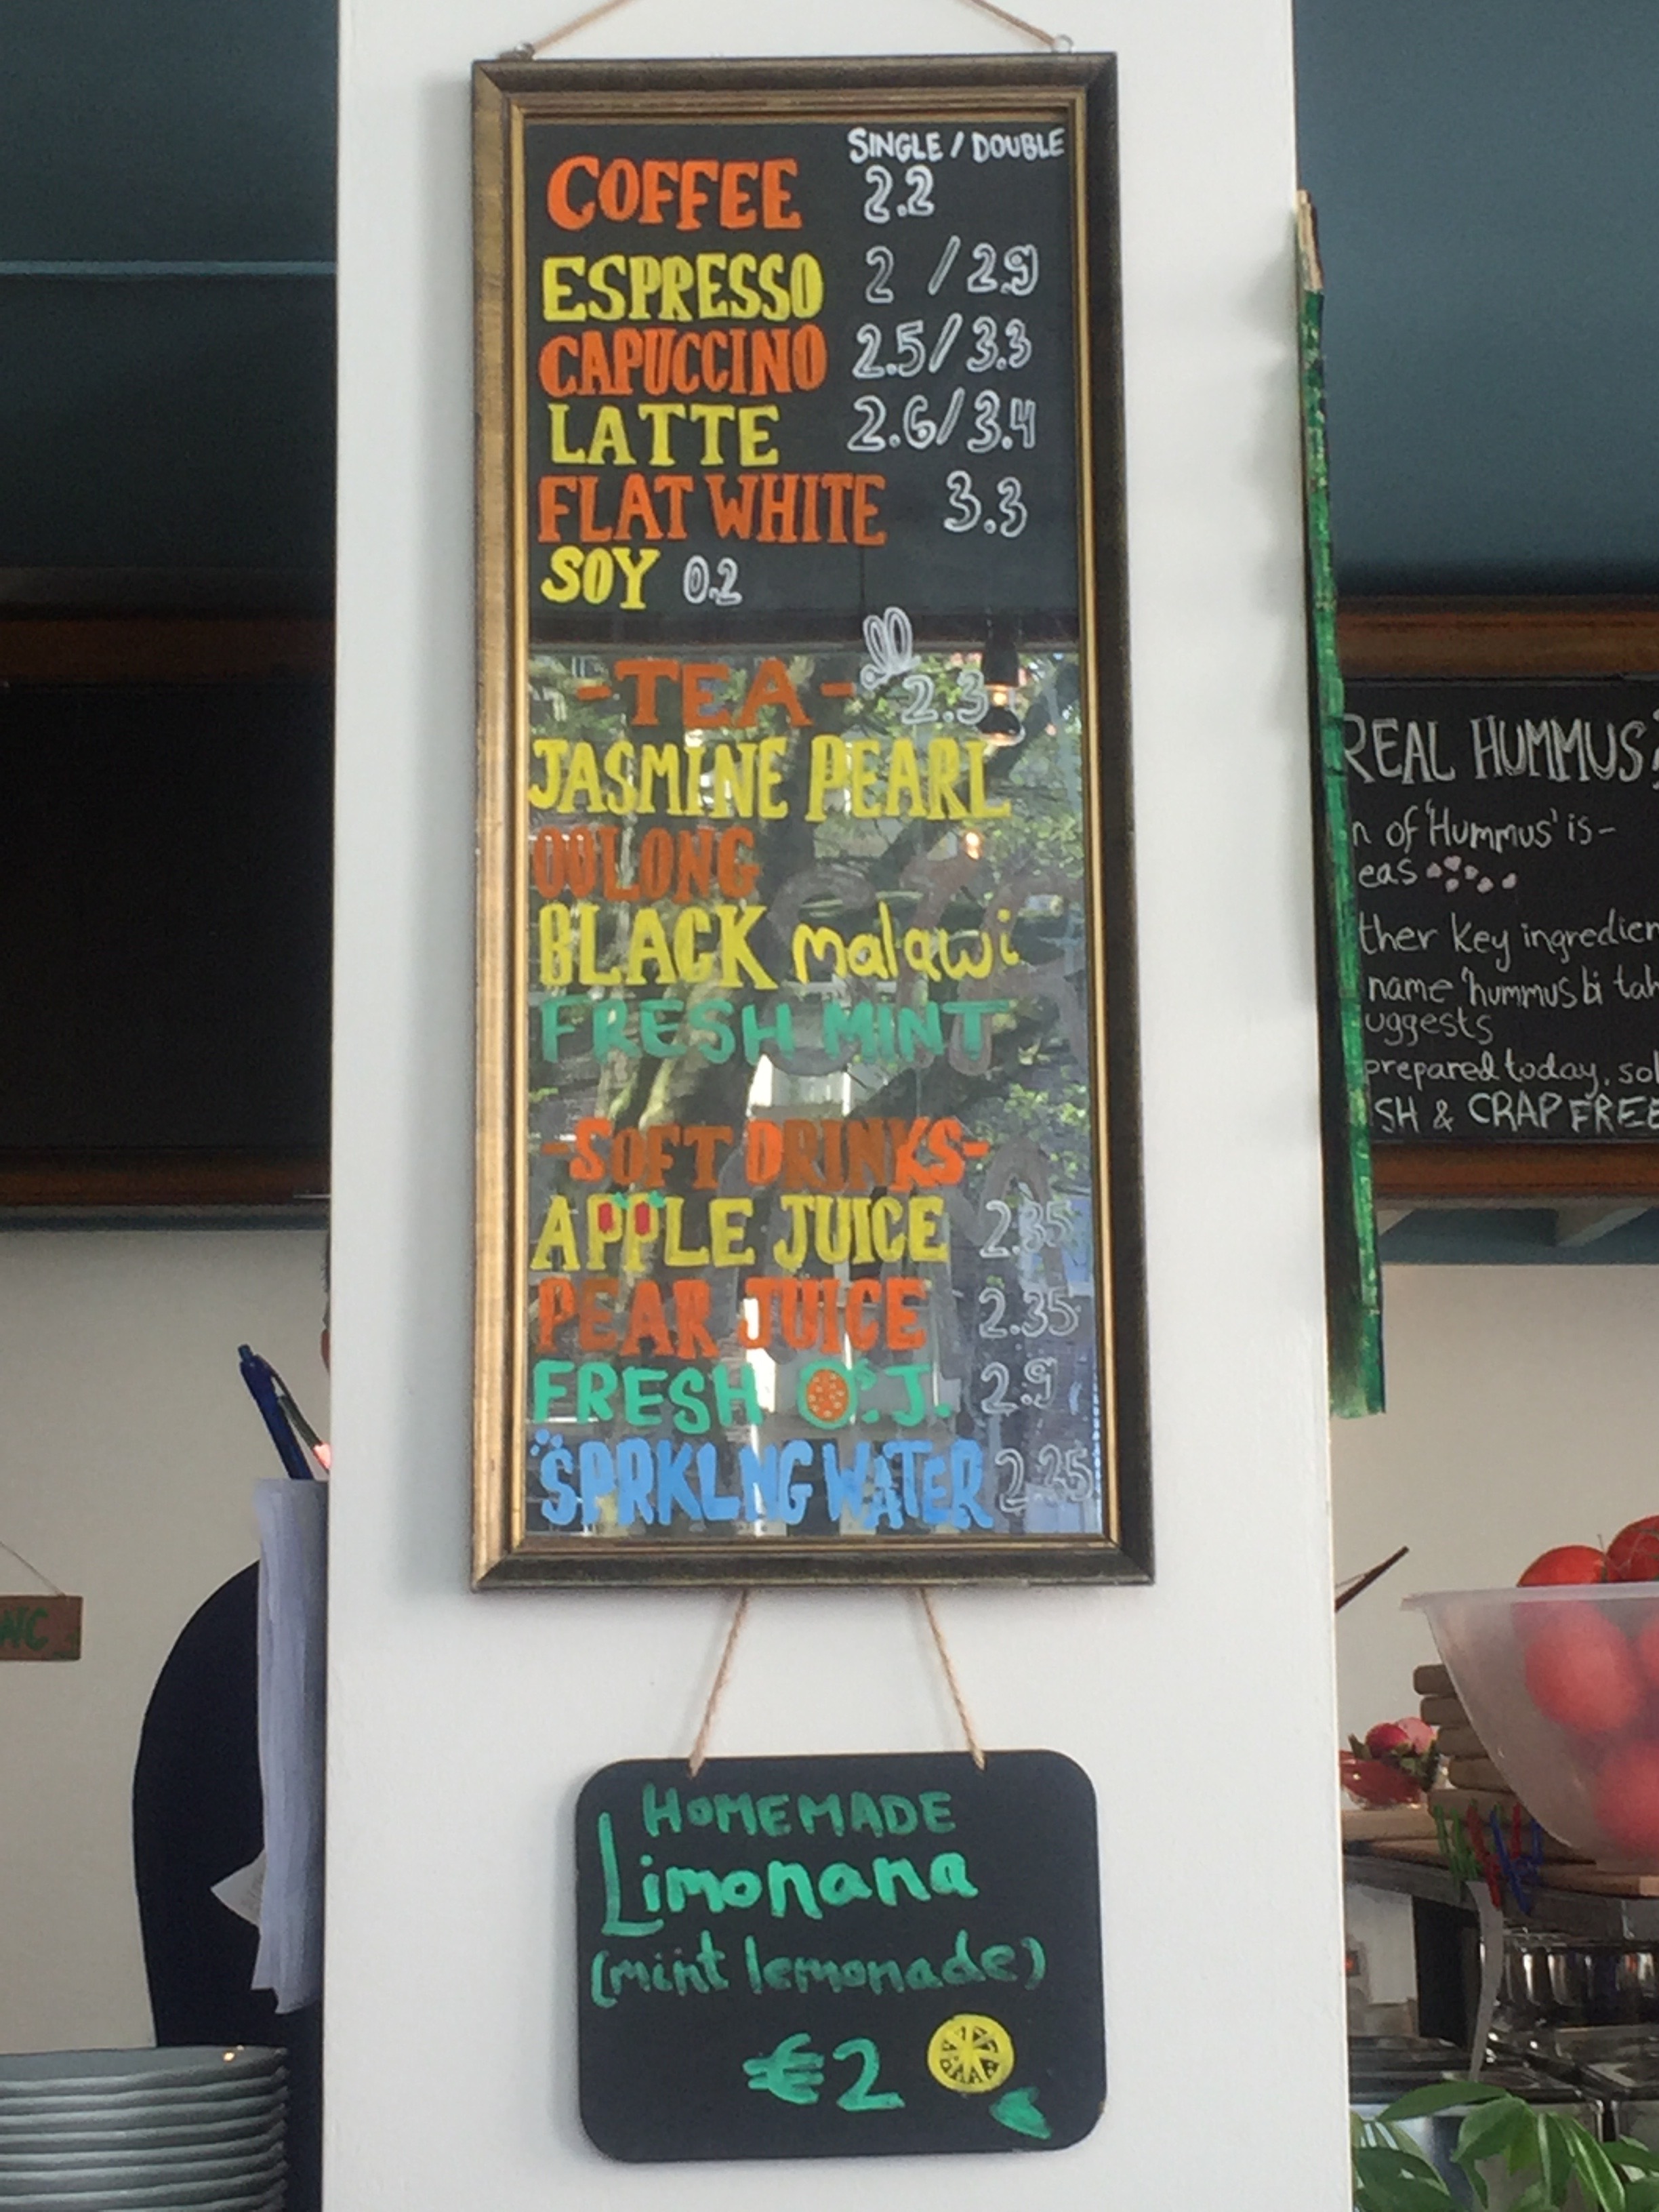 SINGLE / DOUBLE
COFFEE 2.2
ESPRESSO 2 / 2.9
CAPUCCINO 2.5/3.3
LATTE 2.6/3.4
FLAT WHITE 3.3
SOY 0.2
-TEA- 2.3
JASMINE PEARL
OOLONG
BLACK malawi
FRESH MINT
-SOFT DRINKS-
APPLE JUICE 2.35
PEAR JUICE 2.35
FRESH O.J. 2.9
SPRKLNG WATER 2.25
HOMEMADE
Limonana
(mint lemonade)
€2
WC
REAL HUMMUS?
of 'Hummus' is -
eas
ther key ingredien
name 'hummus bi tah
uggests
prepared today, sol
SH & CRAP FREE